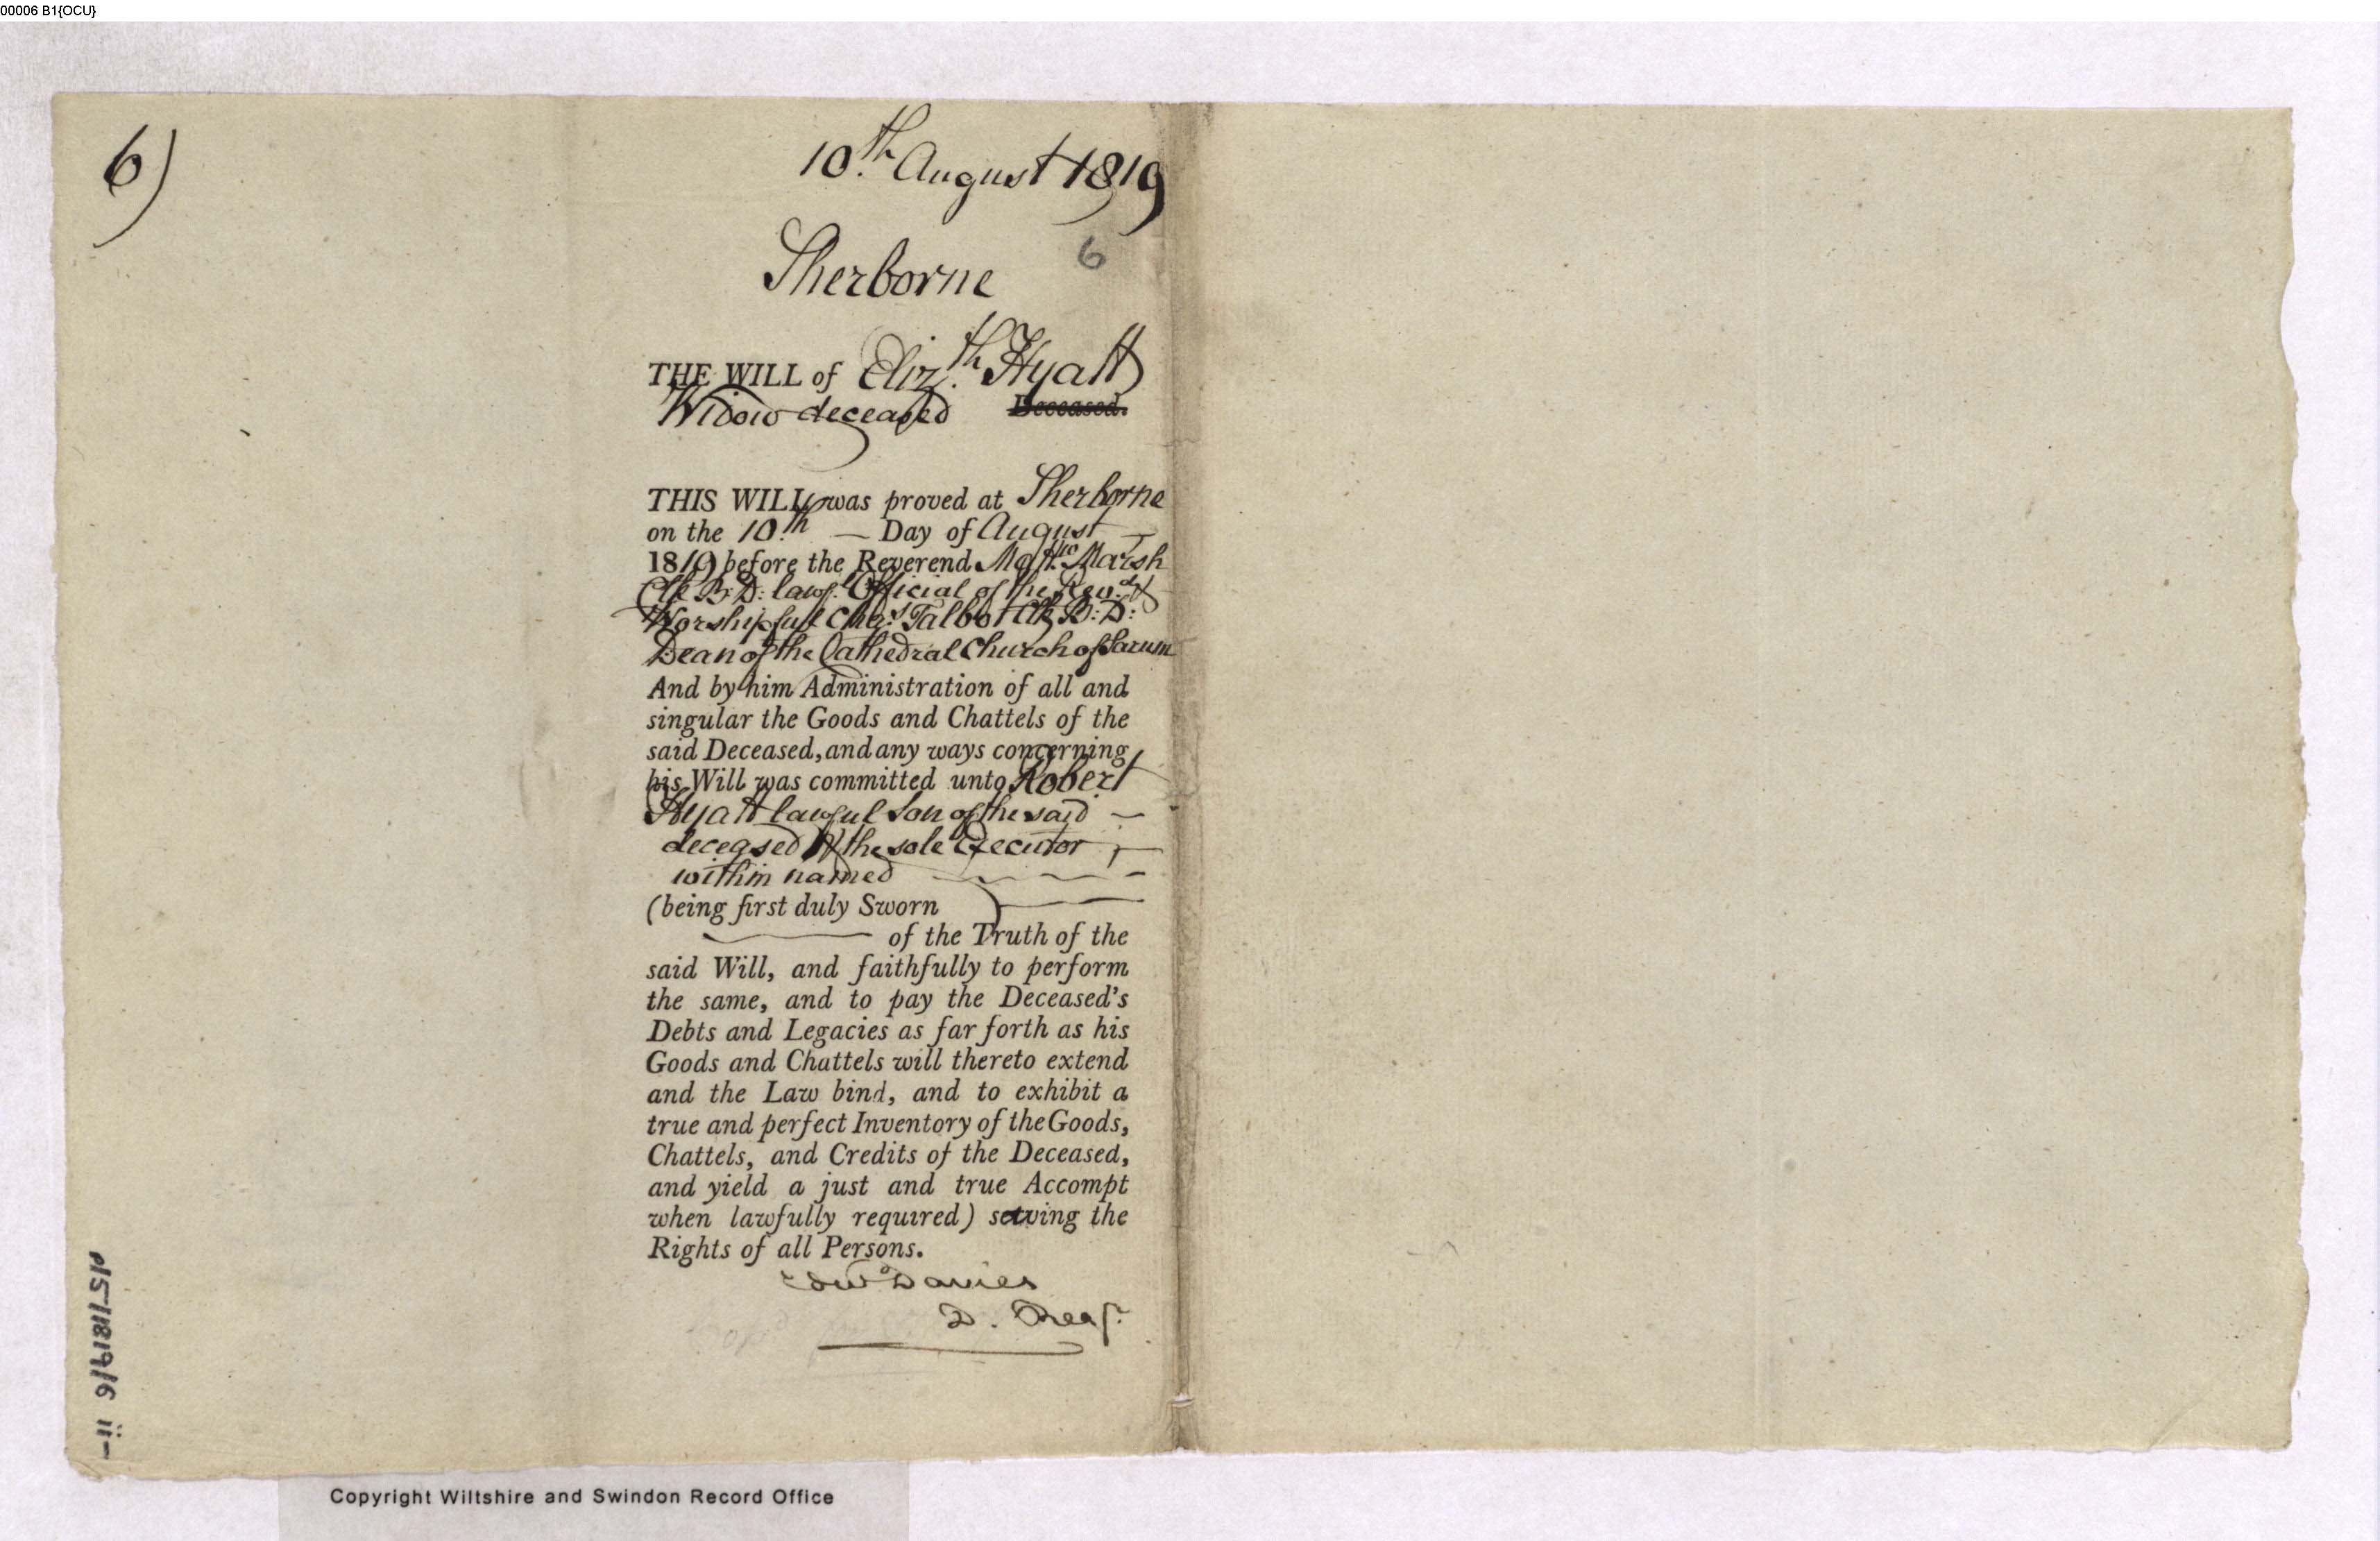 00006 B1{OCU}
6)
10.th August 1819
6
Sherborne
THE WILL of Eliz.th Hyatt
Widow deceased Deceased.
THIS WILL was proved at Sherborne
on the 10.th — Day of August —
1819 before the Reverend Matt.w Marsh
Clk B: D: lawf.l Official of the Rev.d &
Worshipfull Cha.s Talbot Clk B: D:
Dean of the Cathedral Church of Sarum
And by him Administration of all and
singular the Goods and Chattels of the
said Deceased, and any ways concerning
his Will was committed unto Robert
Hyatt lawful Son of the said —
deceased & the sole Executor —
within named — — — —
(being first duly Sworn ) —
— of the Truth of the
said Will, and faithfully to perform
the same, and to pay the Deceased's
Debts and Legacies as far forth as his
Goods and Chattels will thereto extend
and the Law bind, and to exhibit a
true and perfect Inventory of the Goods,
Chattels, and Credits of the Deceased,
and yield a just and true Accompt
when lawfully required) saving the
Rights of all Persons.
Edw.d Davies
D. Reg.r
D15/1819/6 ii-
Copyright Wiltshire and Swindon Record Office